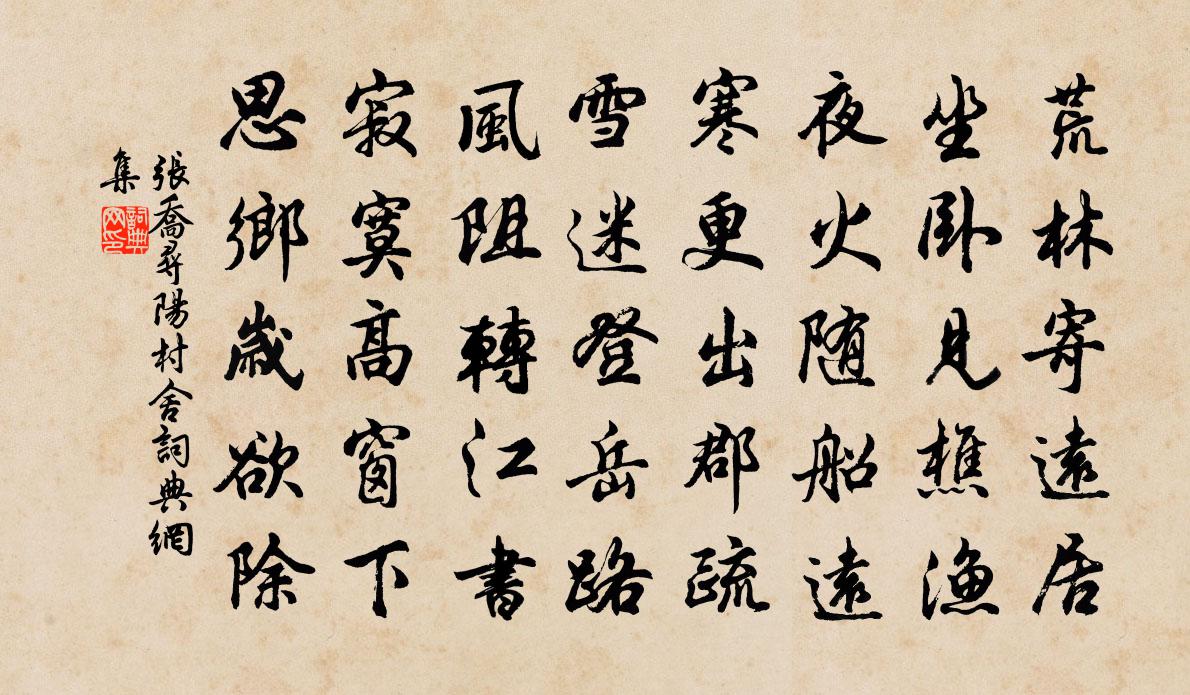 荒林寄遠居
坐卧見樵漁
夜火随船遠
寒更出郡疏
雪迷登岳路
風阻轉江書
寂寞高窗下
思鄉歲欲除
張喬尋陽村舍詞典網
集
詞典
网印